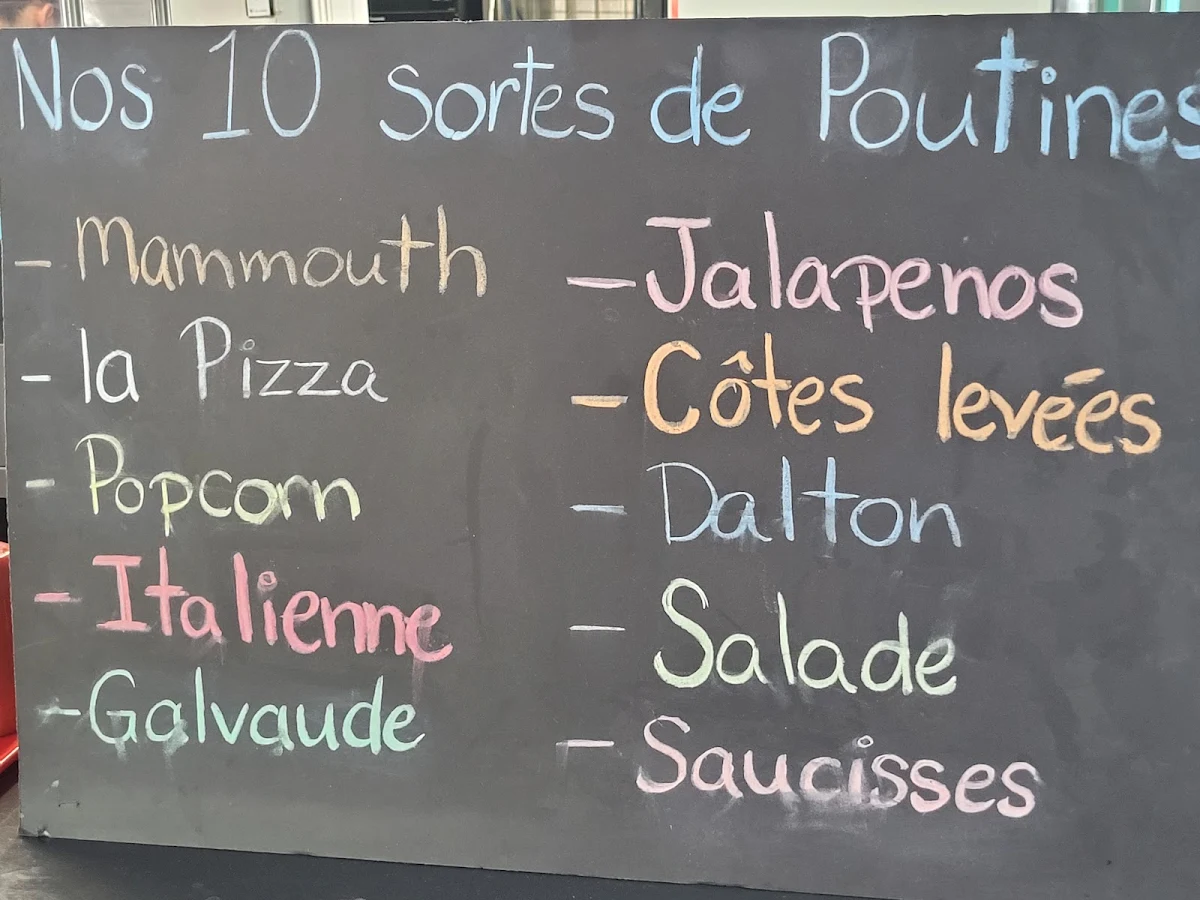 Nos 10 Sortes de Poutines
- Mammouth
- la Pizza
- Popcorn
- Italienne
- Galvaude
- Jalapenos
- Côtes levées
- Dalton
- Salade
- Saucisses